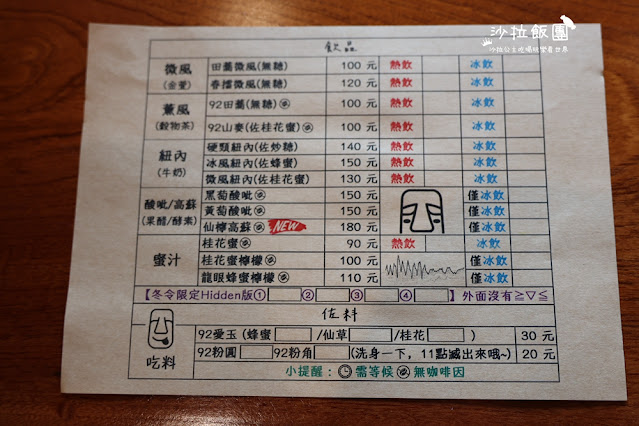 沙拉飯團
沙拉公主吃喝玩樂看世界
飲品
微風 (金萱) 田蕎微風(無糖) 100 元 熱飲 冰飲
春擂微風(無糖) 120 元 熱飲 冰飲
薰風 (穀物茶) 92田蕎(無糖) 100 元 熱飲 冰飲
92山麥(佐桂花蜜) 100 元 熱飲 冰飲
紐內 (牛奶) 硬頸紐內(佐炒糖) 140 元 熱飲 冰飲
冰風紐內(佐蜂蜜) 150 元 熱飲 冰飲
微風紐內(佐桂花蜜) 130 元 熱飲 冰飲
酸呲/高蘇 (果醋/酵素) 黑萄酸呲 150 元 僅冰飲
黃萄酸呲 150 元 僅冰飲
仙檸高蘇 NEW 180 元 僅冰飲
蜜汁 桂花蜜 90 元 熱飲 冰飲
桂花蜜檸檬 100 元 僅冰飲
龍眼蜂蜜檸檬 110 元 僅冰飲
【冬令限定Hidden版① ② ③ ④ 】外面沒有≧▽≦
佐料
吃料 92愛玉 (蜂蜜 /仙草 /桂花 ) 30 元
92粉圓 92粉角 (洗身一下，11點滅出來哦~) 20 元
小提醒： 需等候 無咖啡因